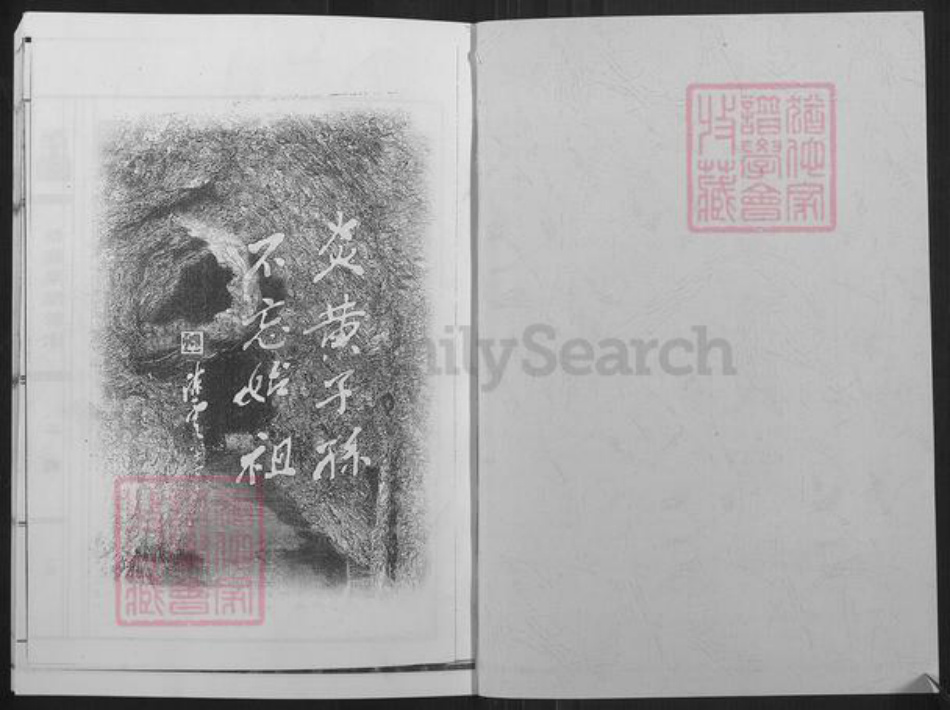 炎黄子孫
不忘始祖
陈雲
猶他家
譜學會
收藏
FamilySearch
猶他家
譜學會
收藏